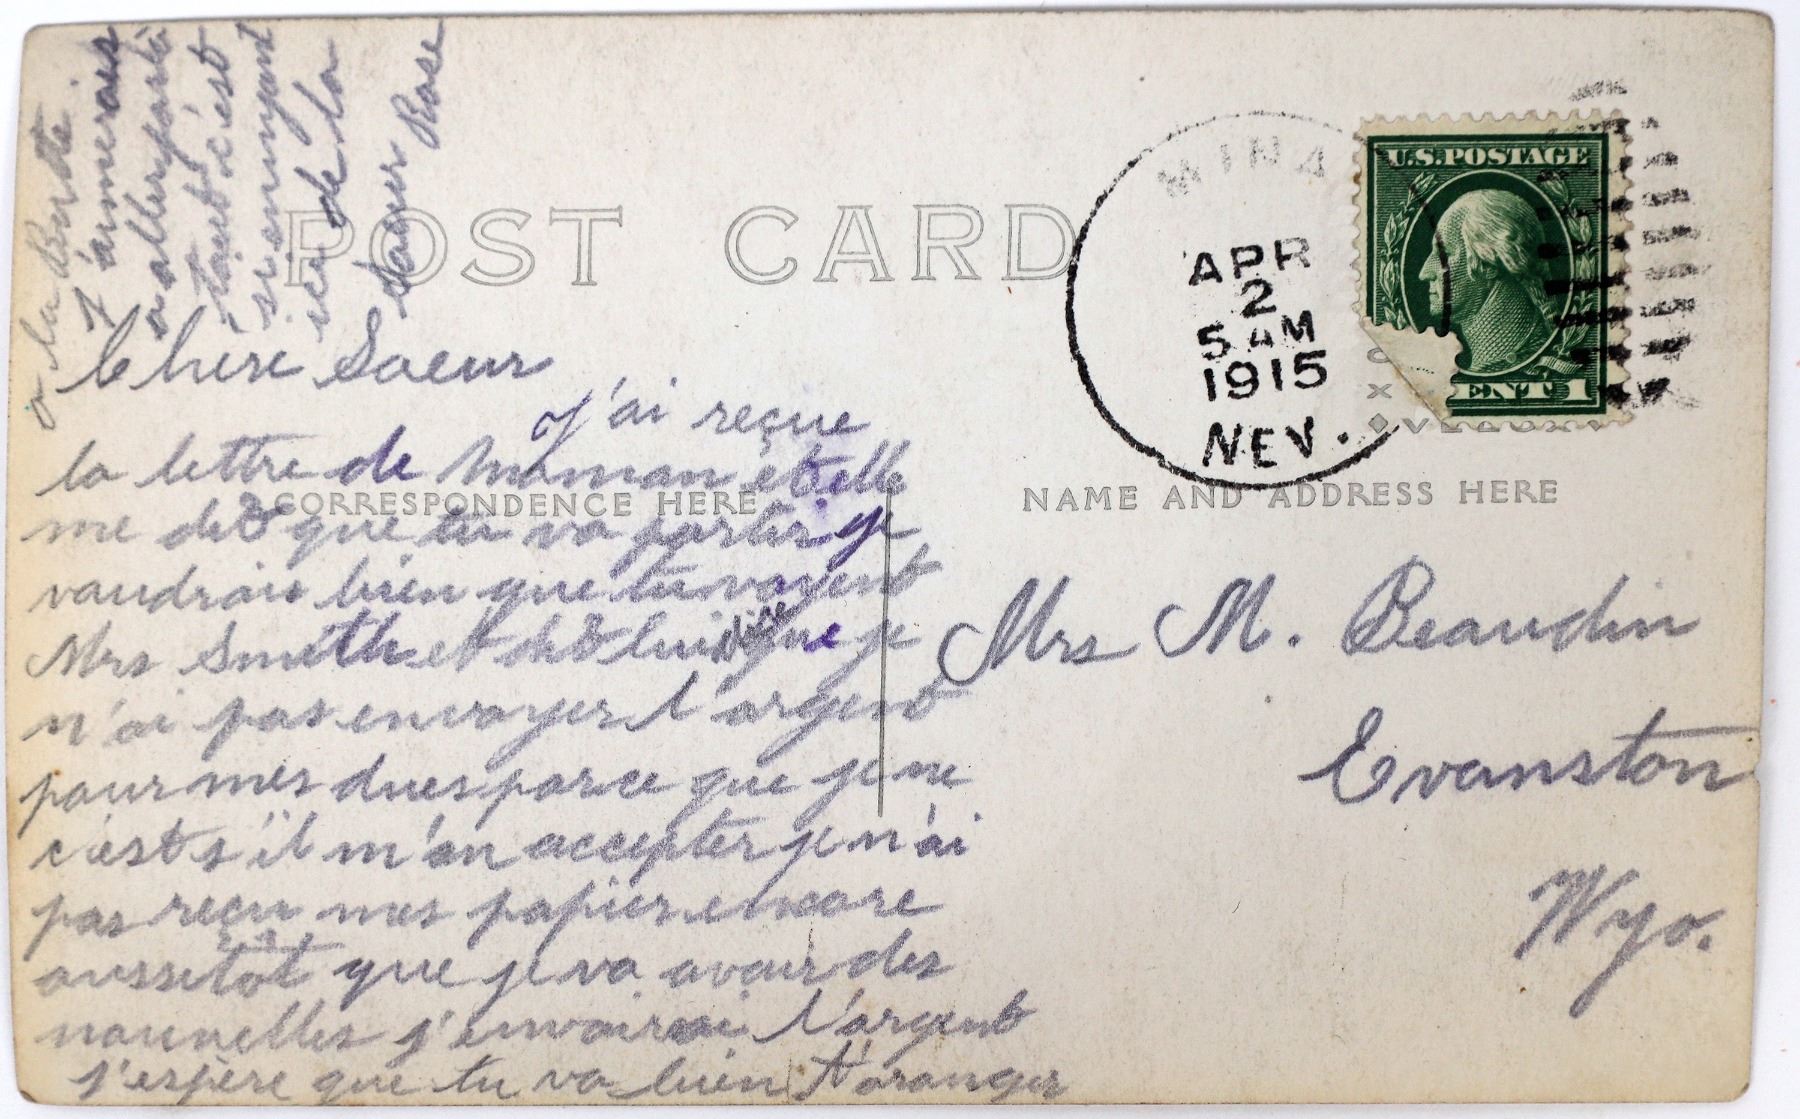 POST CARD
CORRESPONDENCE HERE
NAME AND ADDRESS HERE
U.S. POSTAGE
ENT 1
MINA
APR
2
5 AM
1915
NEV.
Chere Soeur
J'ai reçue
la lettre de Maman et elle
me dit que tu va partir je
vaudrais bien que tu voyent
Mrs Smith et dit lui que je
n'ai pas envoyer l'argent
pour mes dues parce que je ne
c'est s'il m'on accepter je n'ai
pas reçu mes papier encore
aussitôt que je va avoir des
nouvelles j'envoirai l'argent
j'espère que tu va bien t'aranger
a la Berthe
J'aimerais
a aller
tant c'est
si ennuyant
ici de la
Soeur Rose
Mrs M. Beaudin
Evanston
Wyo.